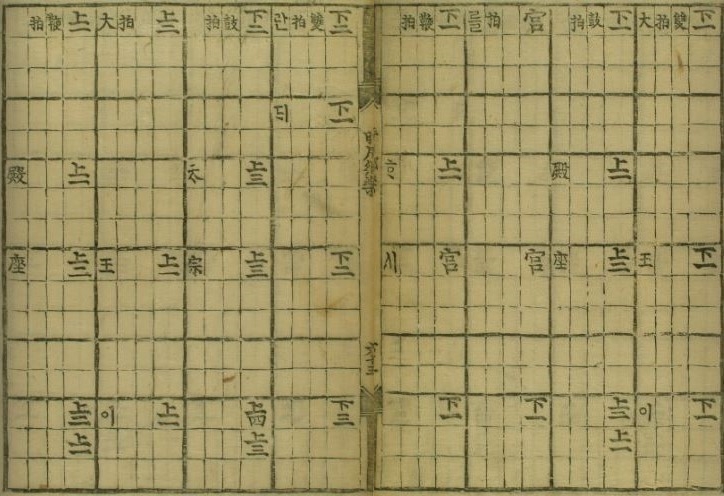 下二 下二 下一
雙
拍
大 王 이
下一 上一 上三 上三 上一
鼓
拍
殿 座
宮 宮 下一
拍
를
下一 上一 宮 下一
鞭
拍
시
時用鄕樂
下二 下二 下二 下三
雙
拍
란 디
下二 上三 上三 上四 上三
鼓
拍
太 宗
上三 上二 上二
拍
大 王 이
上二 上二 上三 上三 上二
鞭
拍
殿 座